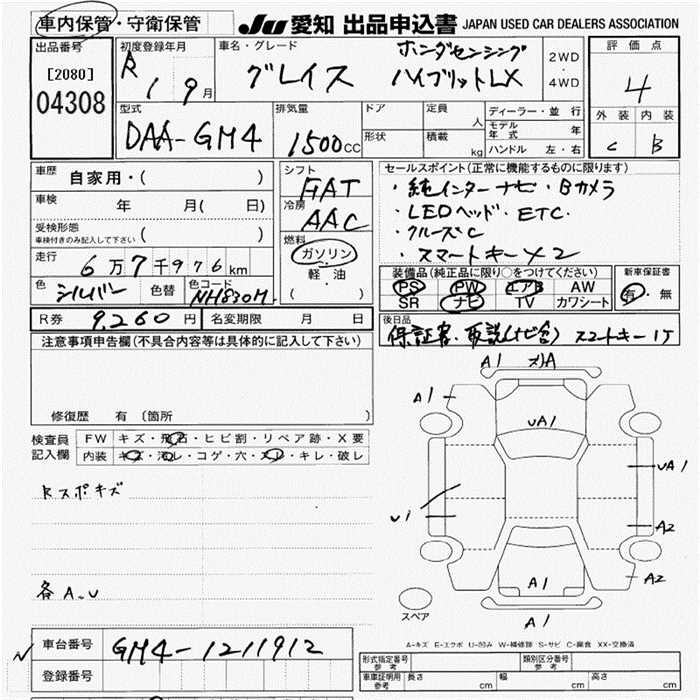 車内保管・守衛保管
JU 愛知 出品申込書 JAPAN USED CAR DEALERS ASSOCIATION
出品番号
[2080]
04308
初度登録年月
R 1 9月
車名・グレード
ホンダセンシング
グレイス ハイブリットLX
2WD
・
4WD
評価点
4
外装 内装
C B
型式
DAA-GM4
排気量
1500CC
ドア
形状
定員 人
積載 kg
ディーラー・並行
モデル年式 年
ハンドル 左・右
車歴 自家用・( )
車検 年 月( 日)
受検形態
車検付きのみ記入して下さい ( )
走行 6万7千976km
色 シルバー 色替 色コード NH830M
シフト
FAT
冷房
AAC
燃料
ガソリン
軽・油
( )
セールスポイント(正常に機能するものに限ります)
・純インターナビ・Bカメラ
・LEDヘッド・ETC・
・クルーズC
・スマートキー×2
装備品(純正品に限り○をつけてください)
PS PW エアB AW
SR ナビ TV カワシート
新車保証書
有・無
R券 9,260円 名変期限 月 日
後日品
保証書・取説(ナビ含) スマートキー1ケ
注意事項申告欄(不具合内容等は具体的に記入して下さい)
修復歴 有 (箇所 )
検査員
記入欄
FW キズ・飛石・ヒビ割・リペア跡・X要
内装 キズ・汚レ・コゲ・穴・スレ・キレ・破レ
Rスポキズ
各A、U
A1
A1
UA1
UA1
U1
A2
A2
A1
A1
スペア
A-キズ E-エクボ U-凹み W-補修跡 S-サビ C-腐食 XX-交換済
車台番号 GM4-1211912
登録番号
形式指定番号
参考
類別区分番号
参考
車庫証明用
参考
長さ cm 幅 cm 高さ cm